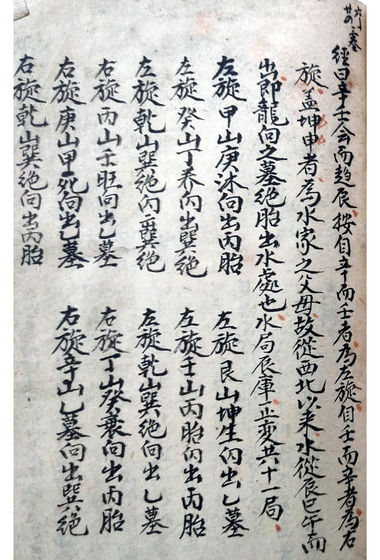 經曰辛壬会而趋辰按自辛而壬者為左旋自壬而辛者為右
旋盖坤申者為水家之父母故從西北以来水從辰巳午而
出即龍向之墓絶胎出水處也水局辰庫正変共十一局
左旋甲山庚沐向出丙胎 左旋艮山坤生向出乙墓
左旋癸山丁养向出巽絶 左旋壬山丙胎向出丙胎
左旋乾山巽絶向出巽絶 左旋乾山巽絶向出乙墓
右旋丙山壬旺向出乙墓 右旋丁山癸衰向出丙胎
右旋庚山甲死向出乙墓 右旋辛山乙墓向出巽絶
右旋乾山巽絶向出丙胎